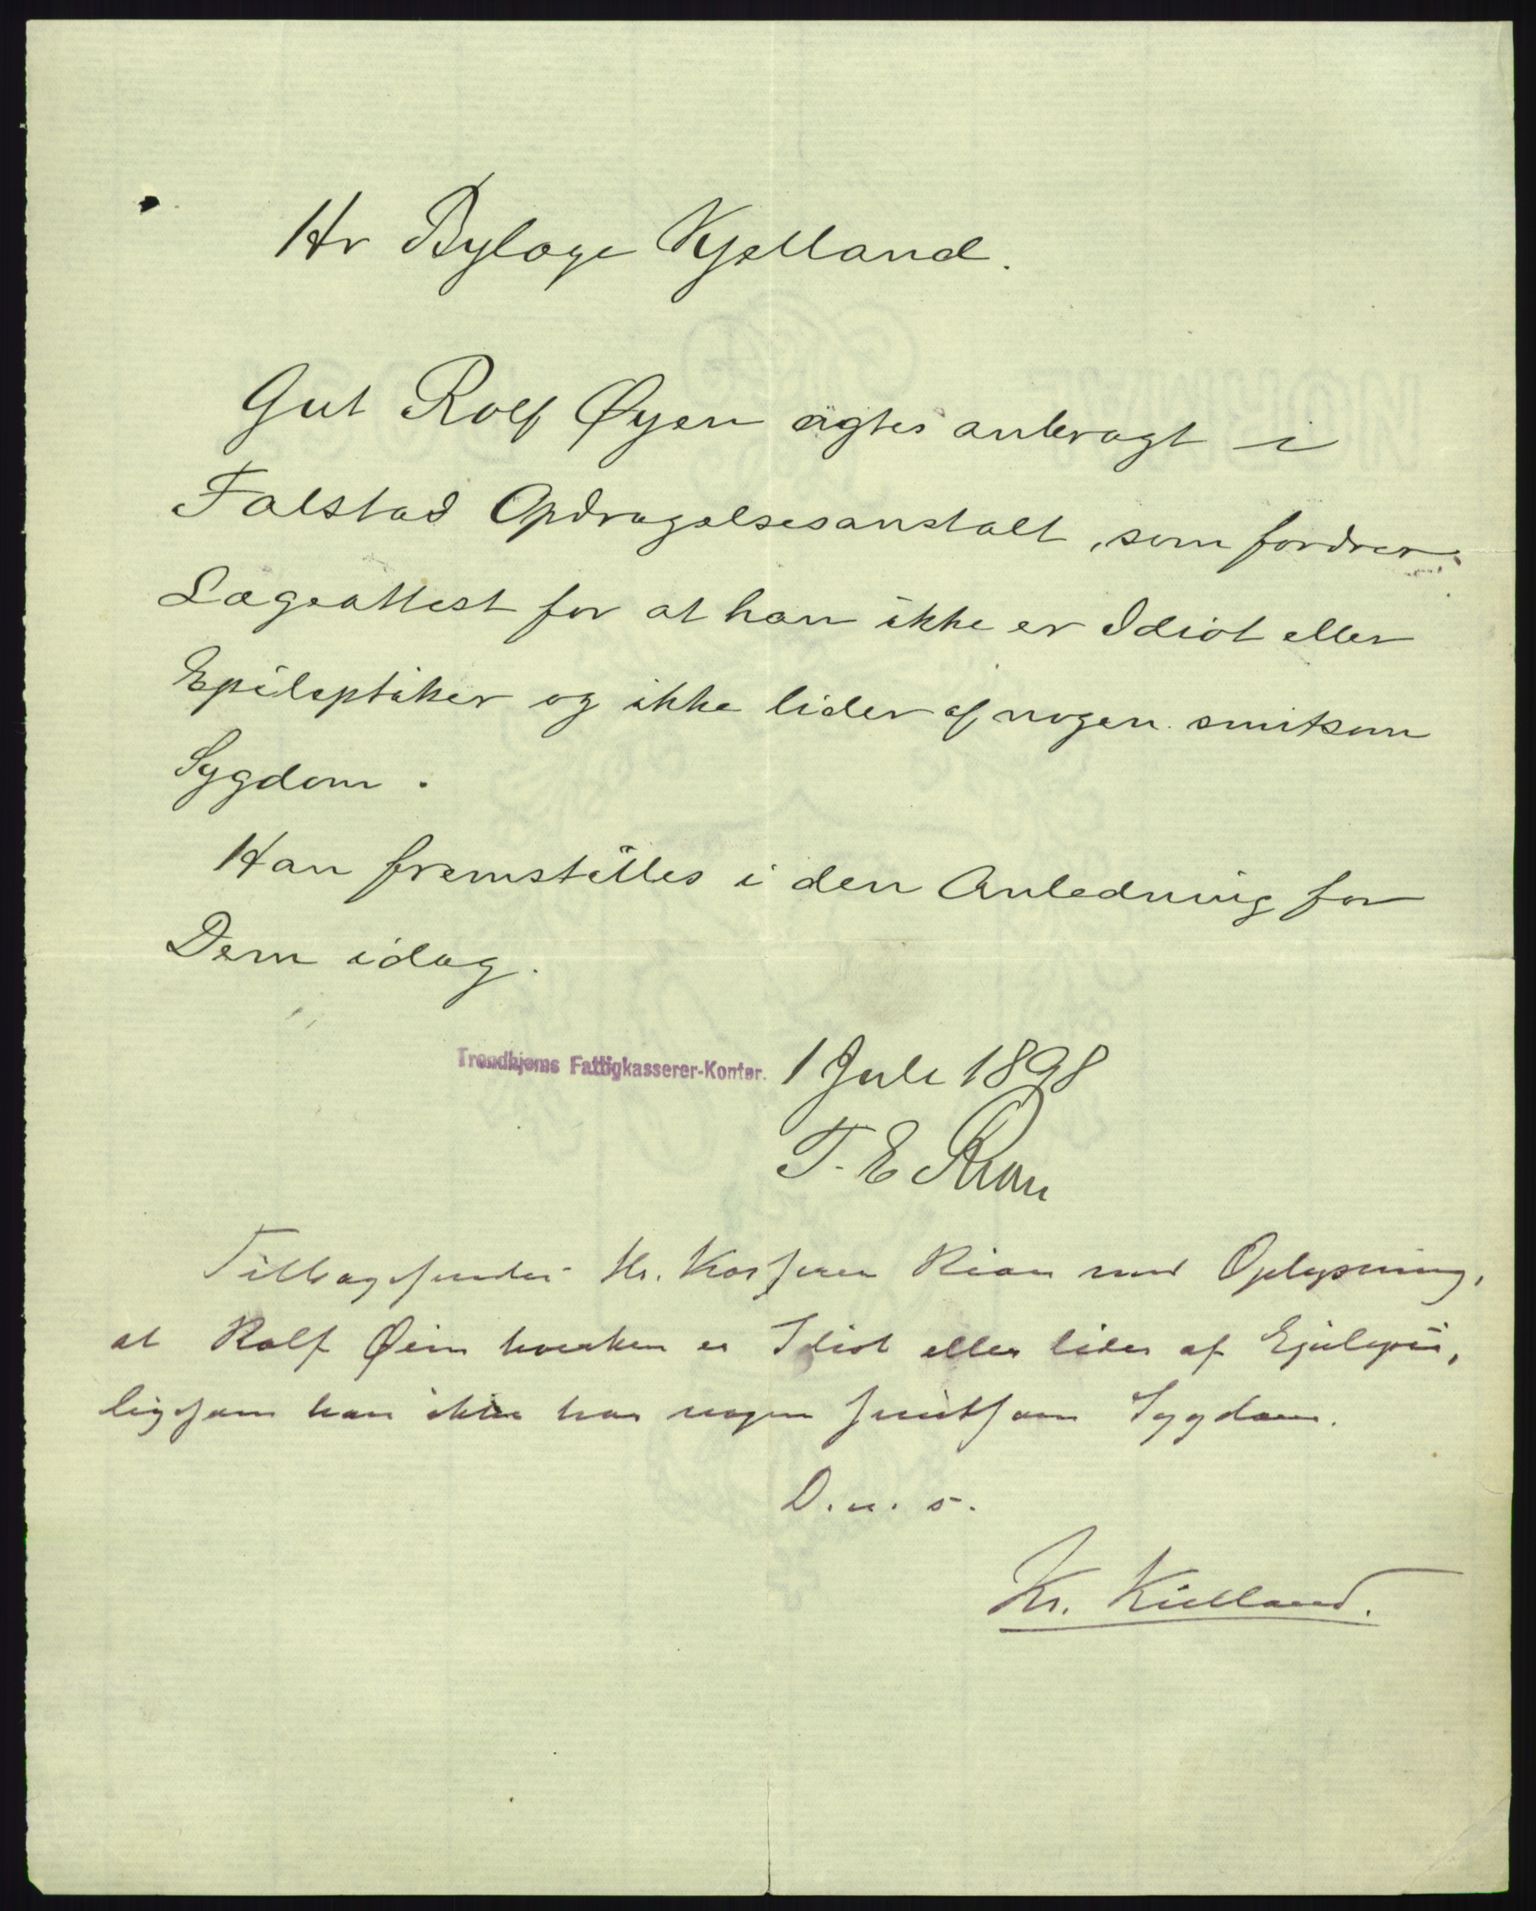 Hr Bylæge Kjelland.
Gut Rolf Øyen agtes anbragt i
Falstad Opdragelsesanstalt, som fordrer
Lægeattest for at han ikke er Idiot eller
Epileptiker og ikke lider af nogen smitsom
Sygdom.
Han fremstilles i den Anledning for
Dem idag.
Trondhjems Fattigkasserer-Kontor. 1 Juli 1898
T. E Rian
Tilbagesendes Hr. Kasserer Rian med Oplysning,
at Rolf Øien hverken er Idiot eller lider af Epilepsi,
ligesom han ikke har nogen smitsom Sygdom.
D. u. s.
Kr. Kielland.